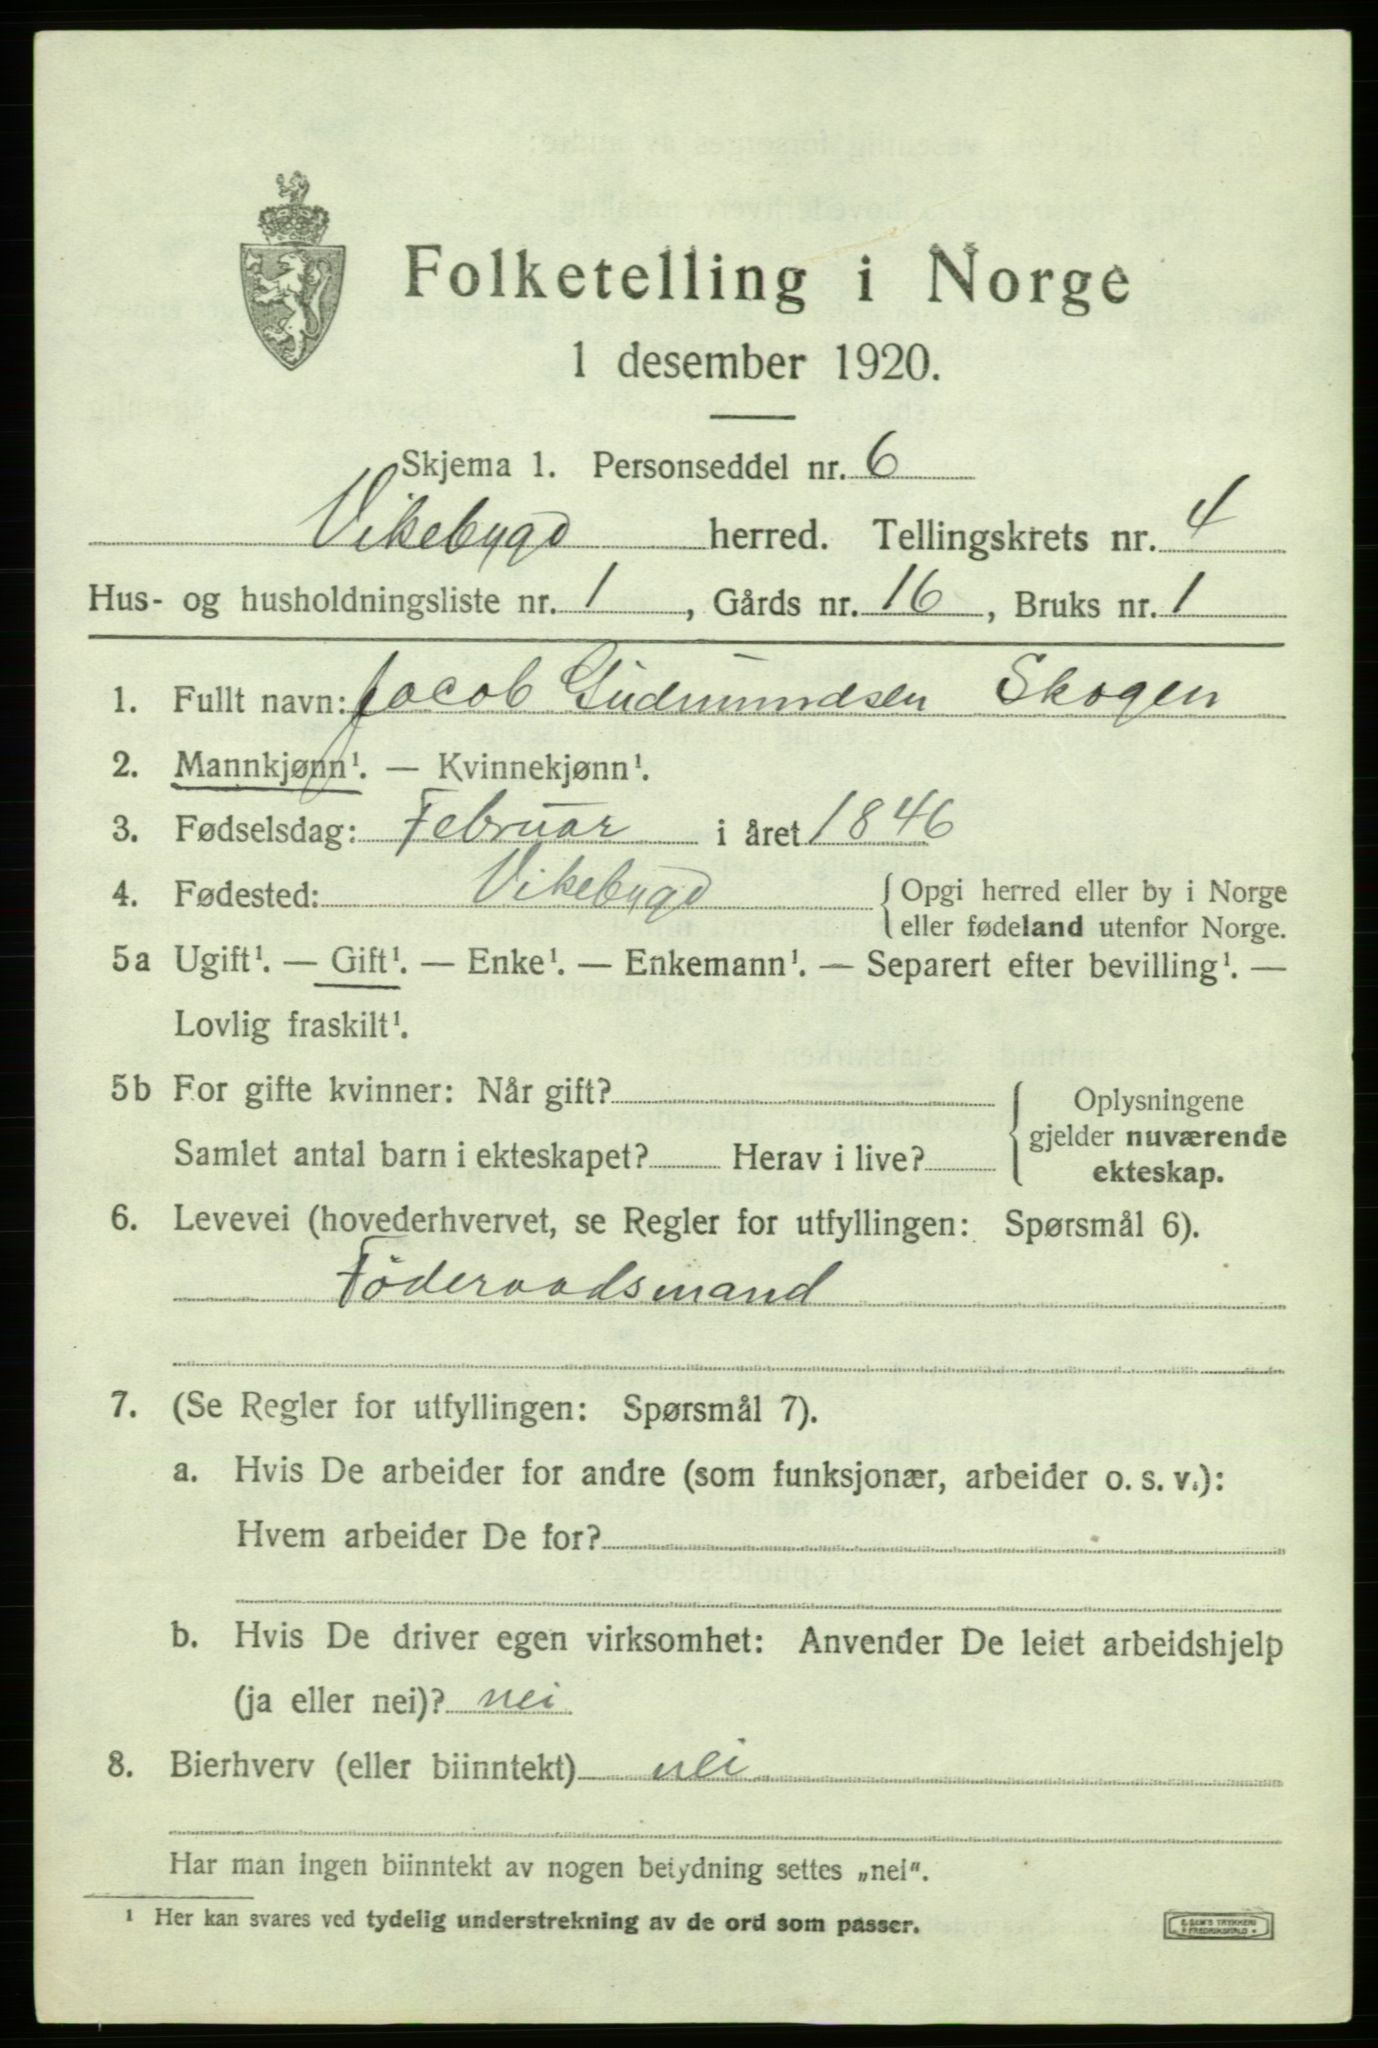 Folketelling i Norge
1 desember 1920.
Skjema 1. Personseddel nr. 6
Vikebygd herred. Tellingskrets nr. 4
Hus- og husholdningsliste nr. 1, Gårds nr. 16, Bruks nr. 1
1. Fullt navn: Jacob Gudmundsen Skogen
2. Mannkjønn¹. — Kvinnekjønn¹.
3. Fødselsdag: Februar i året 1846
4. Fødested: Vikebygd { Opgi herred eller by i Norge
eller fødeland utenfor Norge.
5a Ugift¹. — Gift¹. — Enke¹. — Enkemann¹. — Separert efter bevilling¹. —
Lovlig fraskilt¹.
5b For gifte kvinner: Når gift? { Oplysningene
gjelder nuværende
Samlet antal barn i ekteskapet? Herav i live?
ekteskap.
6. Levevei (hovederhvervet, se Regler for utfyllingen: Spørsmål 6).
Föderaadsmand
7. (Se Regler for utfyllingen: Spørsmål 7).
a. Hvis De arbeider for andre (som funksjonær, arbeider o. s. v.):
Hvem arbeider De for?
b. Hvis De driver egen virksomhet: Anvender De leiet arbeidshjelp
(ja eller nei)? nei
8. Bierhverv (eller biinntekt) nei
Har man ingen biinntekt av nogen betydning settes „nei“.
¹ Her kan svares ved tydelig understrekning av de ord som passer.